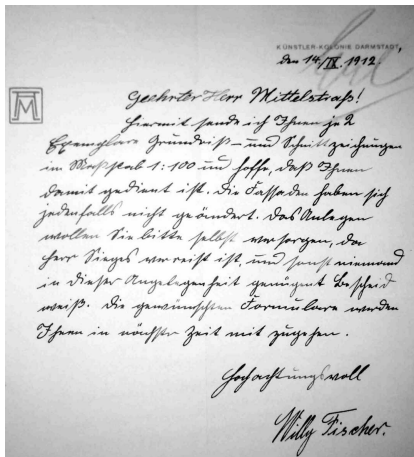 KÜNSTLER-KOLONIE DARMSTADT,
den 14/IX. 1912.
Geehrter Herr Mittelstraß!
Hiermit sende ich Ihnen je 2
Exemplare Grundriß- und Schnittzeichnungen
im Maßstab 1:100 und hoffe, daß Ihnen
damit gedient ist. Die Fassaden haben sich
jedenfalls nicht geändert. Das Anlegen
wollen Sie bitte selbst versorgen, da
Herr Sieges verreist ist, und sonst niemand
in dieser Angelegenheit genügent Bescheid
weiß. Die gewünschten Formulare werden
Ihnen in nächster Zeit mit zugehen.
Hochachtungsvoll
Willy Fischer.